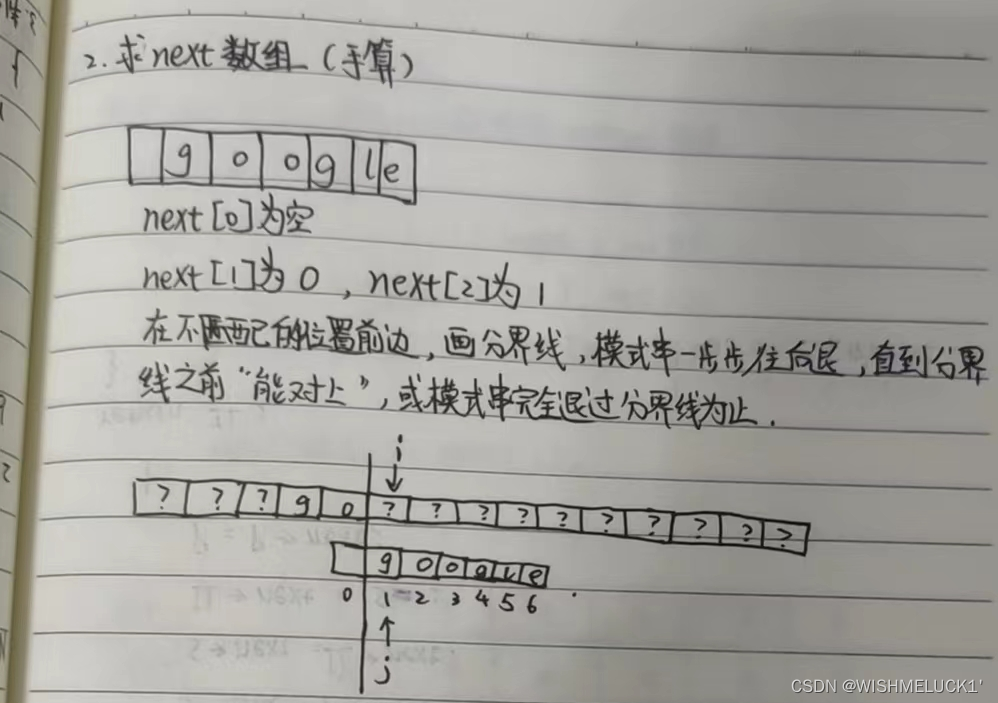 2. 求next数组 (手算)
g o o g l e
next[0]为空
next[1]为0，next[2]为1
在不匹配的位置前边，画分界线，模式串一步步往后退，直到分界
线之前“能对上”，或模式串完全退过分界线为止.
i
? ? ? g o ? ? ? ? ? ? ? ? ? ?
g o o g l e
0 1 2 3 4 5 6
j
CSDN @WISHMELUCK1'